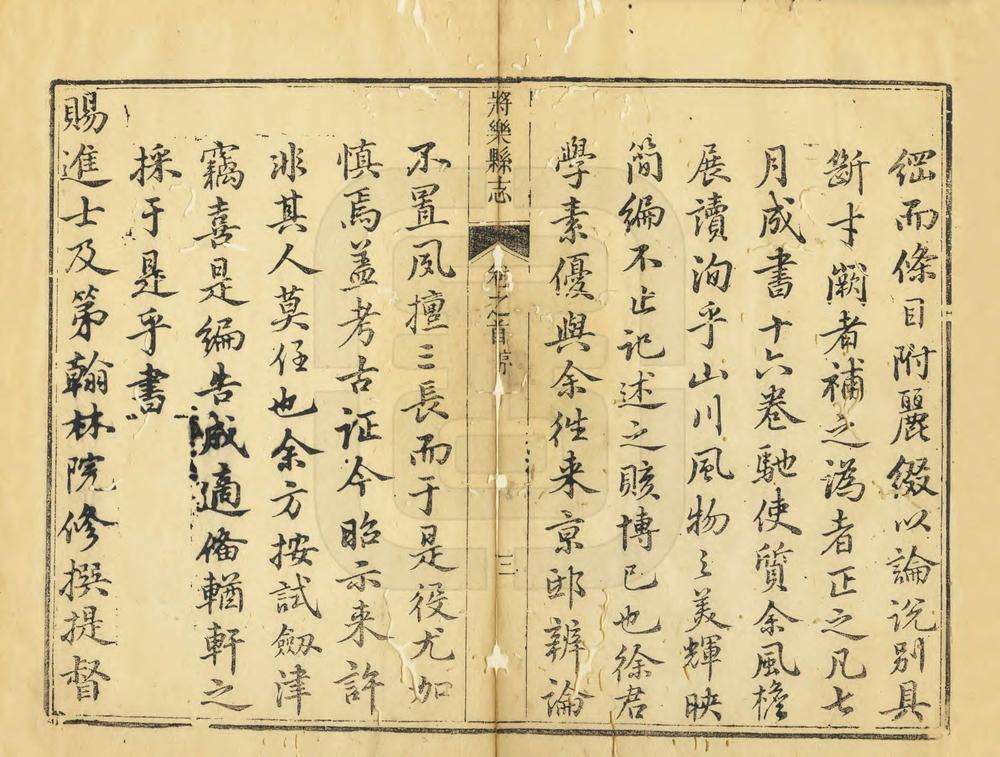 綱而條目附麗綴以論說別具
斷才闕者補之譌者正之凡七
月成書十六卷馳使質余風檐
展讀洵乎山川風物之美輝映
簡編不止記述之賅博已也徐君
學素優與余徃来京邸辨論
將樂縣志
卷之首序
三
不置夙擅三長而于是役尤加
慎焉盖考古証今昭示来許
非其人莫任也余方按試劔津
竊喜是編告成適偹輶軒之
採于是乎書
賜進士及第翰林院修撰提督